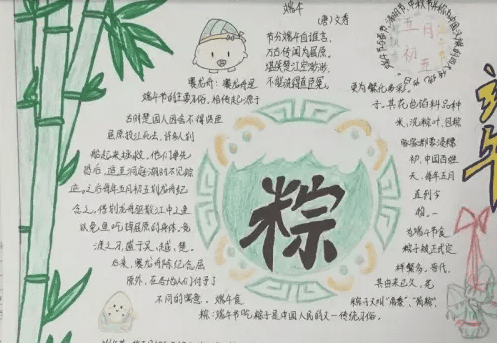 端午
(唐)文秀
节分端午自谁言,
万古传闻为屈原。
堪笑楚江空渺渺,
不能洗得直臣冤。
五月
初五
赛龙舟: 赛龙舟是
端午节的主要习俗。相传起源于
古时楚国人因舍不得贤臣
屈原投江死去, 许多人划
船追赶拯救。他们争先
恐后, 追至洞庭湖时不见踪
迹。之后每年五月初五划龙舟纪
念之。借划龙舟驱散江中之鱼
以免鱼吃掉屈原的身体。竞
渡之习, 盛于吴、越、楚。
后来, 赛龙舟除纪念屈
原外, 在各地人们付予了
不同的寓意。端午食
粽: 端午节吃粽子是中国人民的又一传统习俗。
粽
更为繁化多彩。
子, 其花色馅料品种
米、洗粽叶、包粽
中国百姓
天, 每年五月
直到今
端午节食
粽子被正式定
其由来已久, 花
粽子又叫“角黍”、“筒粽”。
午